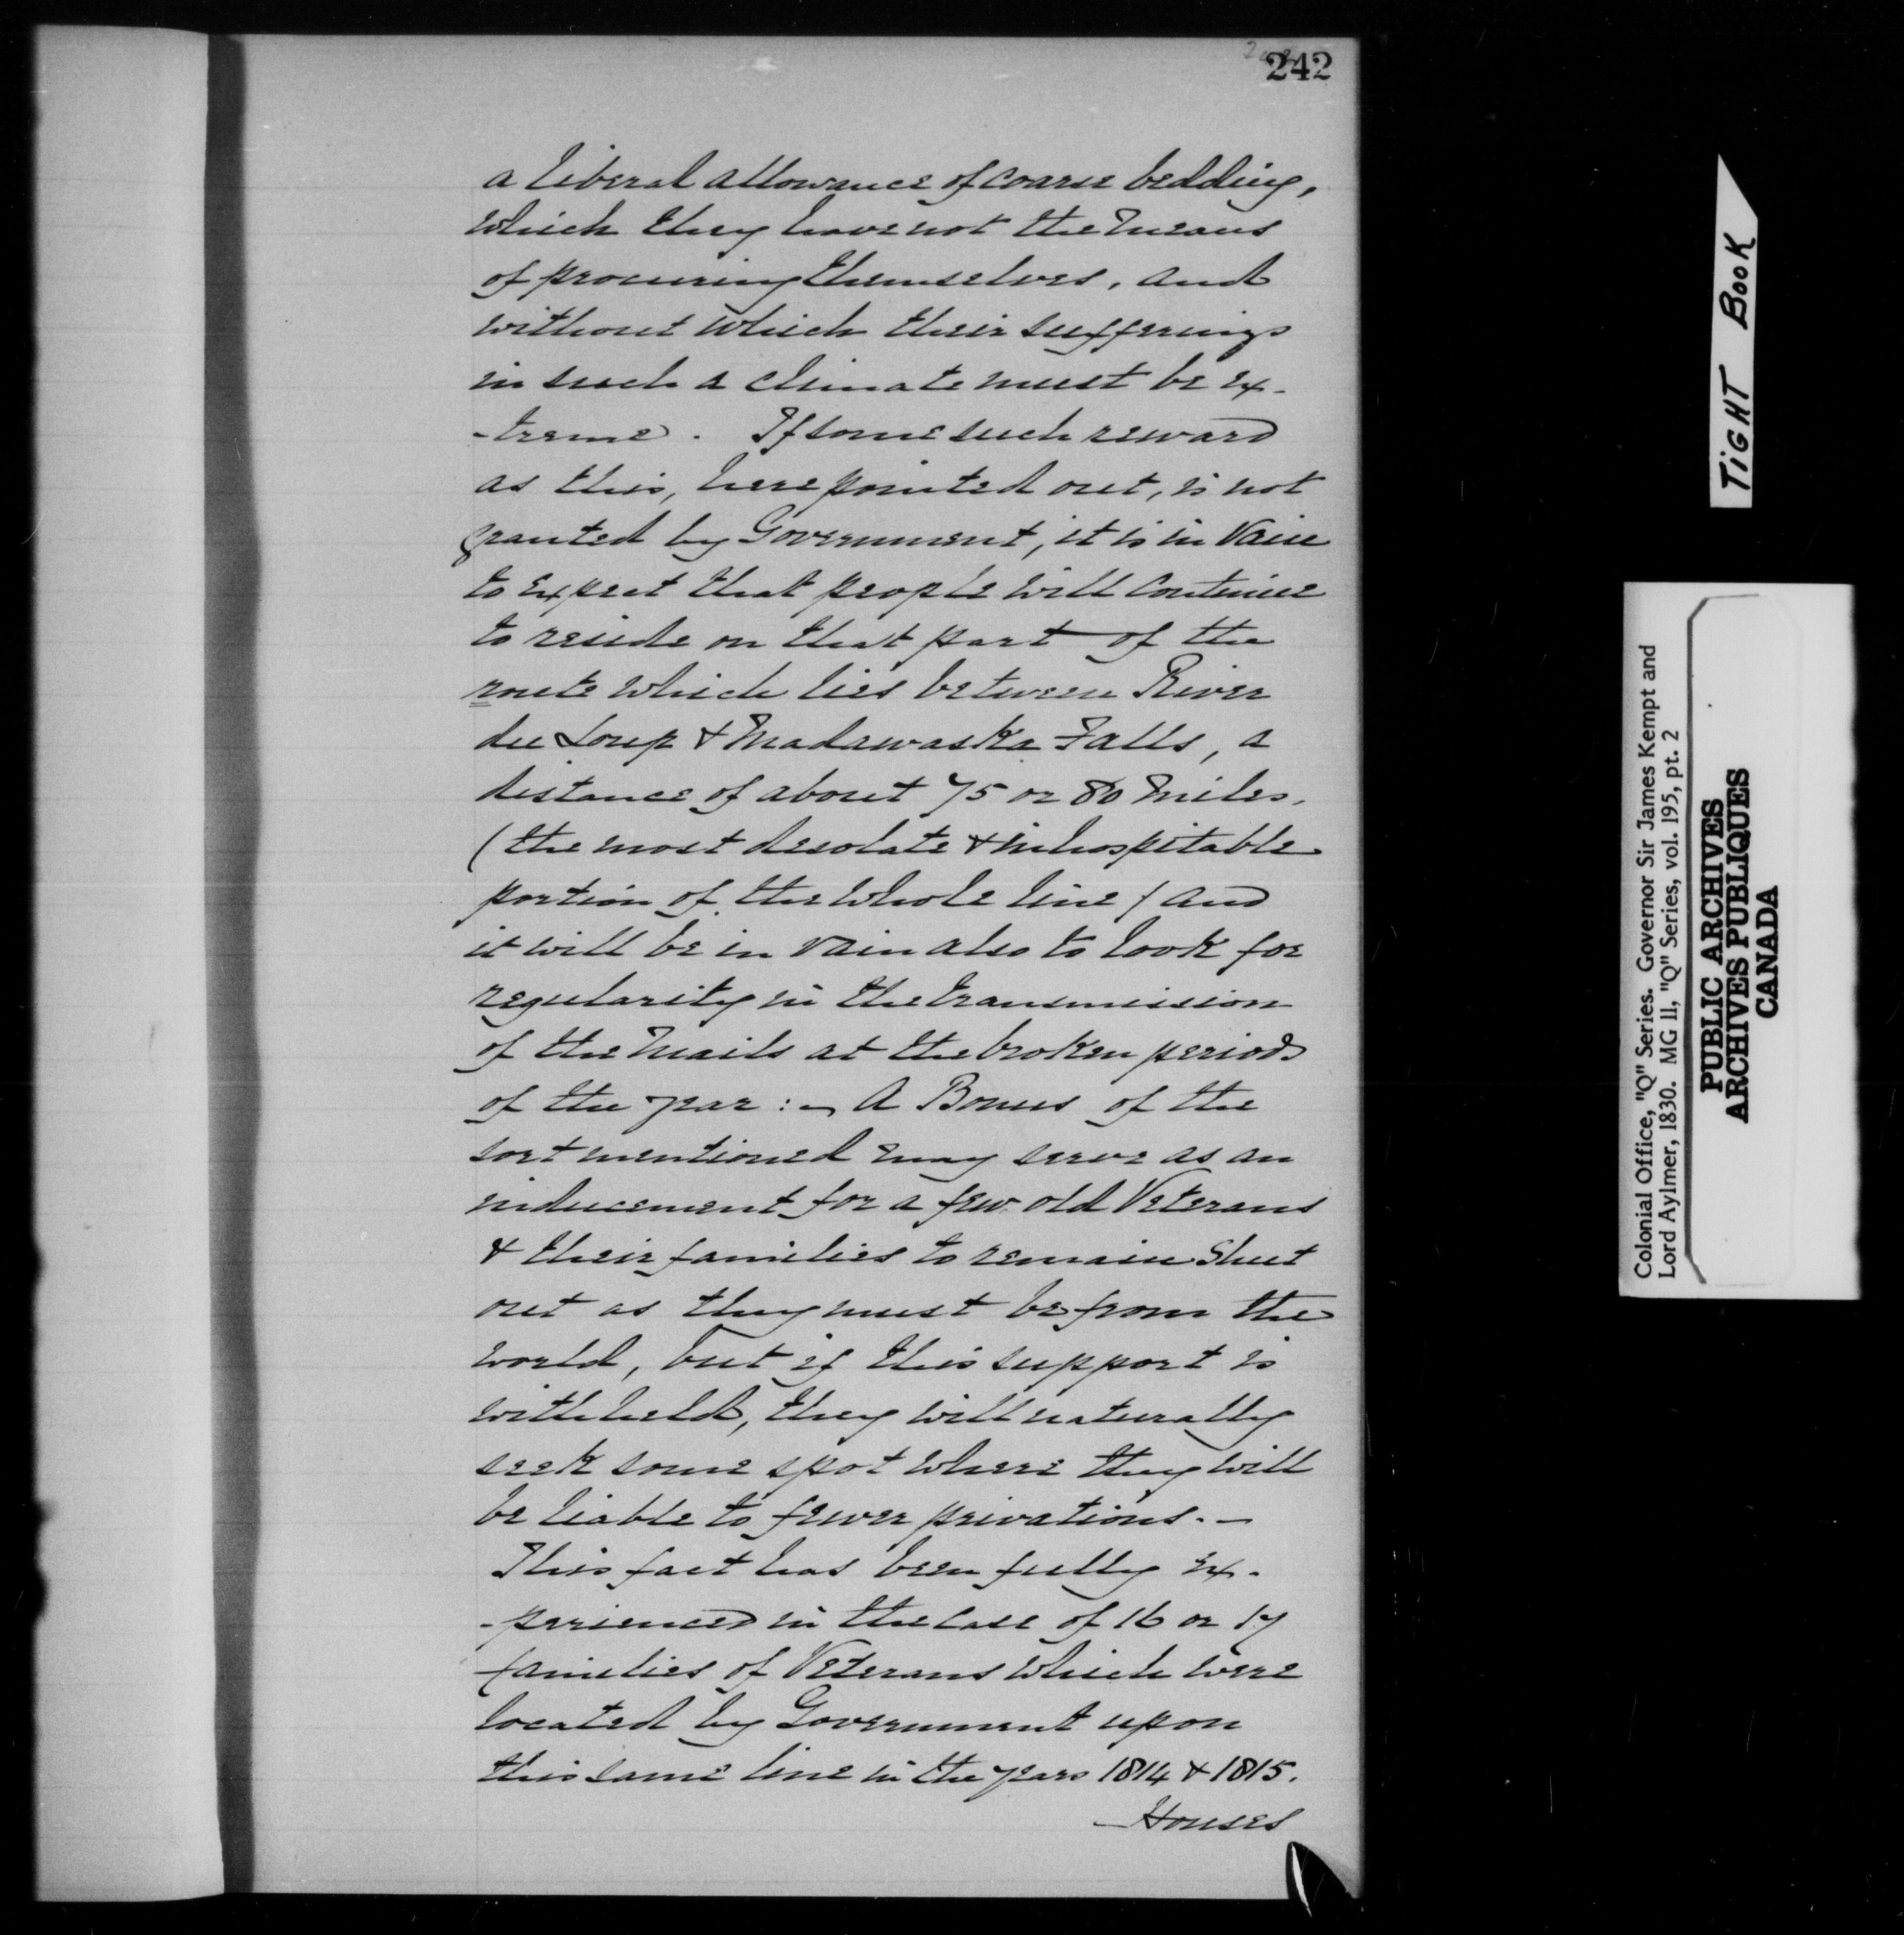 242
a liberal allowance of coarse bedding,
which they have not the means
of procuring themselves, and
without which their sufferings
in such a climate must be ex-
-treme. If some such reward
as this, here pointed out, is not
granted by Government, it is in vain
to expect that people will continue
to reside on that part of the
route which lies between River
du Loup & Madawaska Falls, a
distance of about 75 or 80 miles.
(the most desolate & inhospitable
portion of the whole line / and
it will be in vain also to look for
regularity in the transmission
of the Mails at the broken periods
of the year :- A Bonus of the
sort mentioned may serve as an
inducement for a few old Veterans
& their families to remain shut
out as they must be from the
world, but if this support is
withheld, they will naturally
seek some spot where they will
be liable to fewer privations. -
This fact has been fully ex-
-perienced in the case of 16 or 17
families of Veterans which were
located by Government upon
this same line in the years 1814 & 1815.
- Houses
TIGHT BOOK
Colonial Office, "Q" Series. Governor Sir James Kempt and
Lord Aylmer, 1830. MG 11, "Q" Series, vol. 195, pt. 2
PUBLIC ARCHIVES
ARCHIVES PUBLIQUES
CANADA